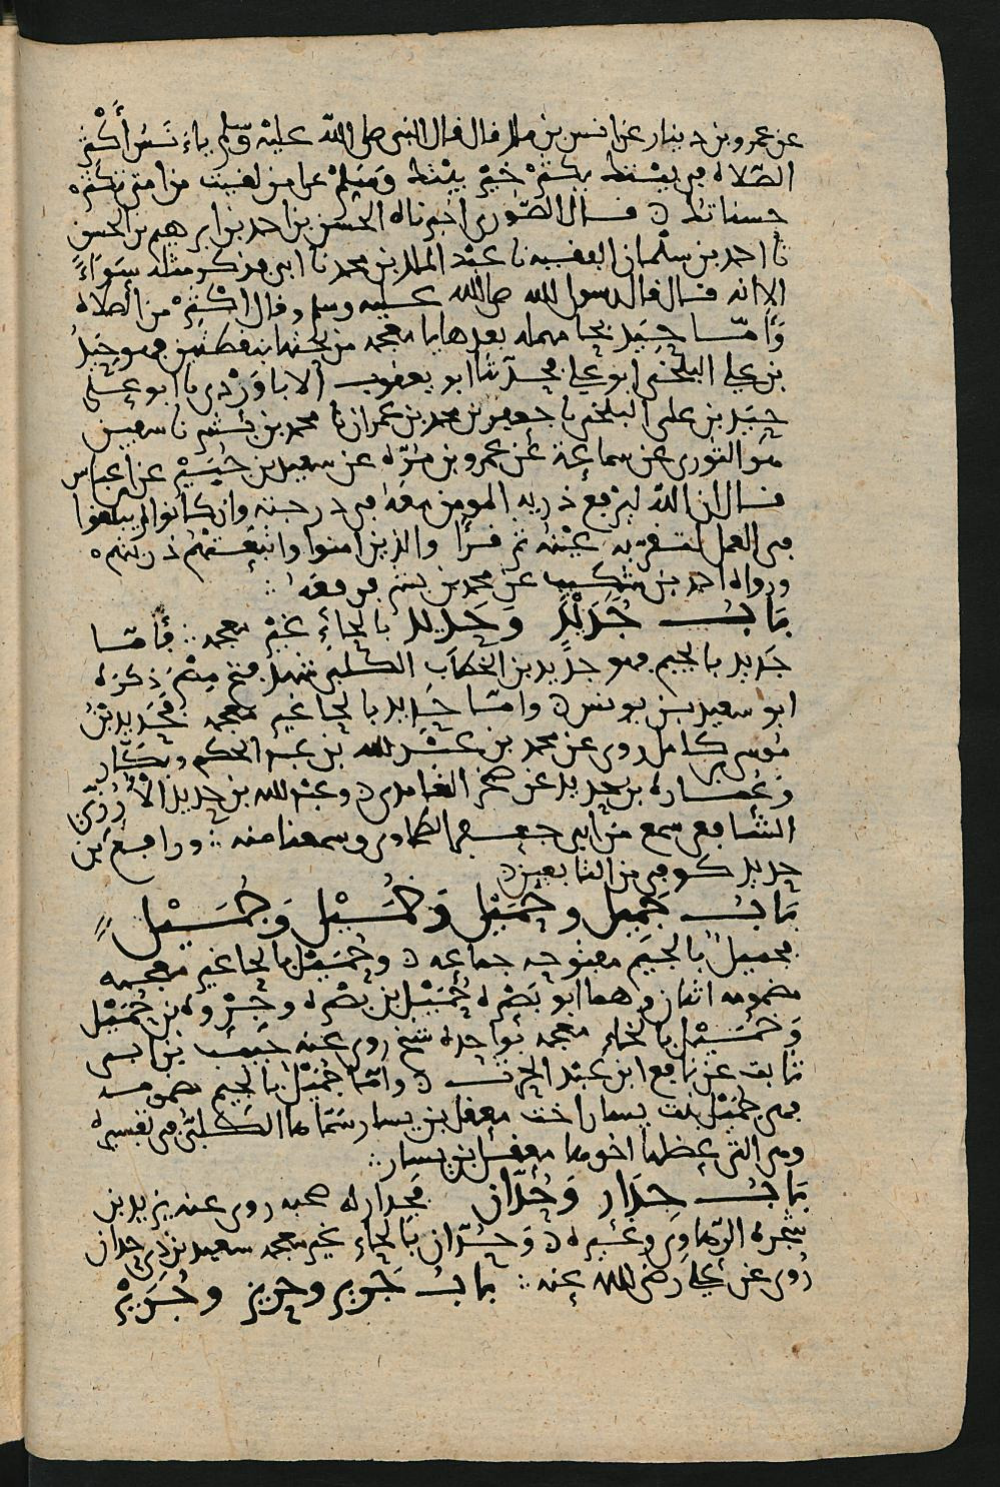 عن عمرو بن دينار عن انس بن ملك قال قال النبي صلى الله عليه وسلم يا انس أكثر
الصلاة في بيتك يكثر خير بيتك وسلم على من لقيت من امتي تكثر
حسناتك ٥ قال الصوري اخبرناه الحسن بن احمد بن ابرهيم بن الحسن
نا احمد بن سلمان الفقيه نا عبد الملك بن محمد نا ابي فذكر مثله سواءً
الا انه قال قال رسول الله صلى الله عليه وسلم وقال اكثر من الصلاة
وأما حيد بحا مهمله بعدها يا معجمه من تحتها بنقطتين فهو حيد
بن علي البلخي ابو علي محمد نا ابو يعقوب الاباوردي نا ابو علي
حيد بن علي البلخي نا جعفر بن محمد بن عمران نا محمد بن بشر نا سفين
هو الثوري عن سماعة عن عمرو بن مرة عن سعيد بن جبير عن ابن عباس
قال ان الله ليرفع ذرية المومن معه في درجته وان كانوا لم يبلغوا
في العمل لتقر به عينه ثم قرا والذين امنوا واتبعتهم ذريتهم ٥
ورواه احمد بن شكيب عن محمد بن بشر فرفعه
باب جديد وحديد بالحاء غير معجمه فأما
جديد بالجيم فهو جديد بن الخطاب الكلبي شهد فتح مصر ذكره
ابو سعيد بن يونس ٥ واما حديد بالحا غير معجمه فحديد بن
موسى كامل روى عن محمد بن عبد الله بن عبد الحكم وبكار
وعمارة بن حديد عن صخر الغامدي ٥ وعبد الله بن حديد الازدي
الشافعي سمع من ابي جعفر الطحاوي وسمعنا منه ورافع بن
حديد كوفي من التابعين ٥
باب جميل وحميل وخميل وجميل
فجميل بالجيم مفتوحه جماعه ٥ وحميل بالحا غير معجمه
مضمومه اثنان وهما ابو بصره حميل بن بصره وجروه بن حميل
وخميل بالخاء معجمه بواحدة شيخ روى عنه حبيب بن ابي
ثابت عن نافع ابن عبد الحرث ٥ وأما جميل بالجيم مضمومه
فهي جميل بنت يسار اخت معقل بن يسار سماها الكلبي في تفسيره
وهي التي عضلها اخوها معقل بن يسار
باب جدار وحدان فجدار له صحبه روى عنه يزيد بن
شجرة الرهاوي وغيره ٥ وحدان بالحاء غير معجمه سعيد بن ذي حدان
روى عن علي رضي الله عنه باب جرير وحريز وجرير